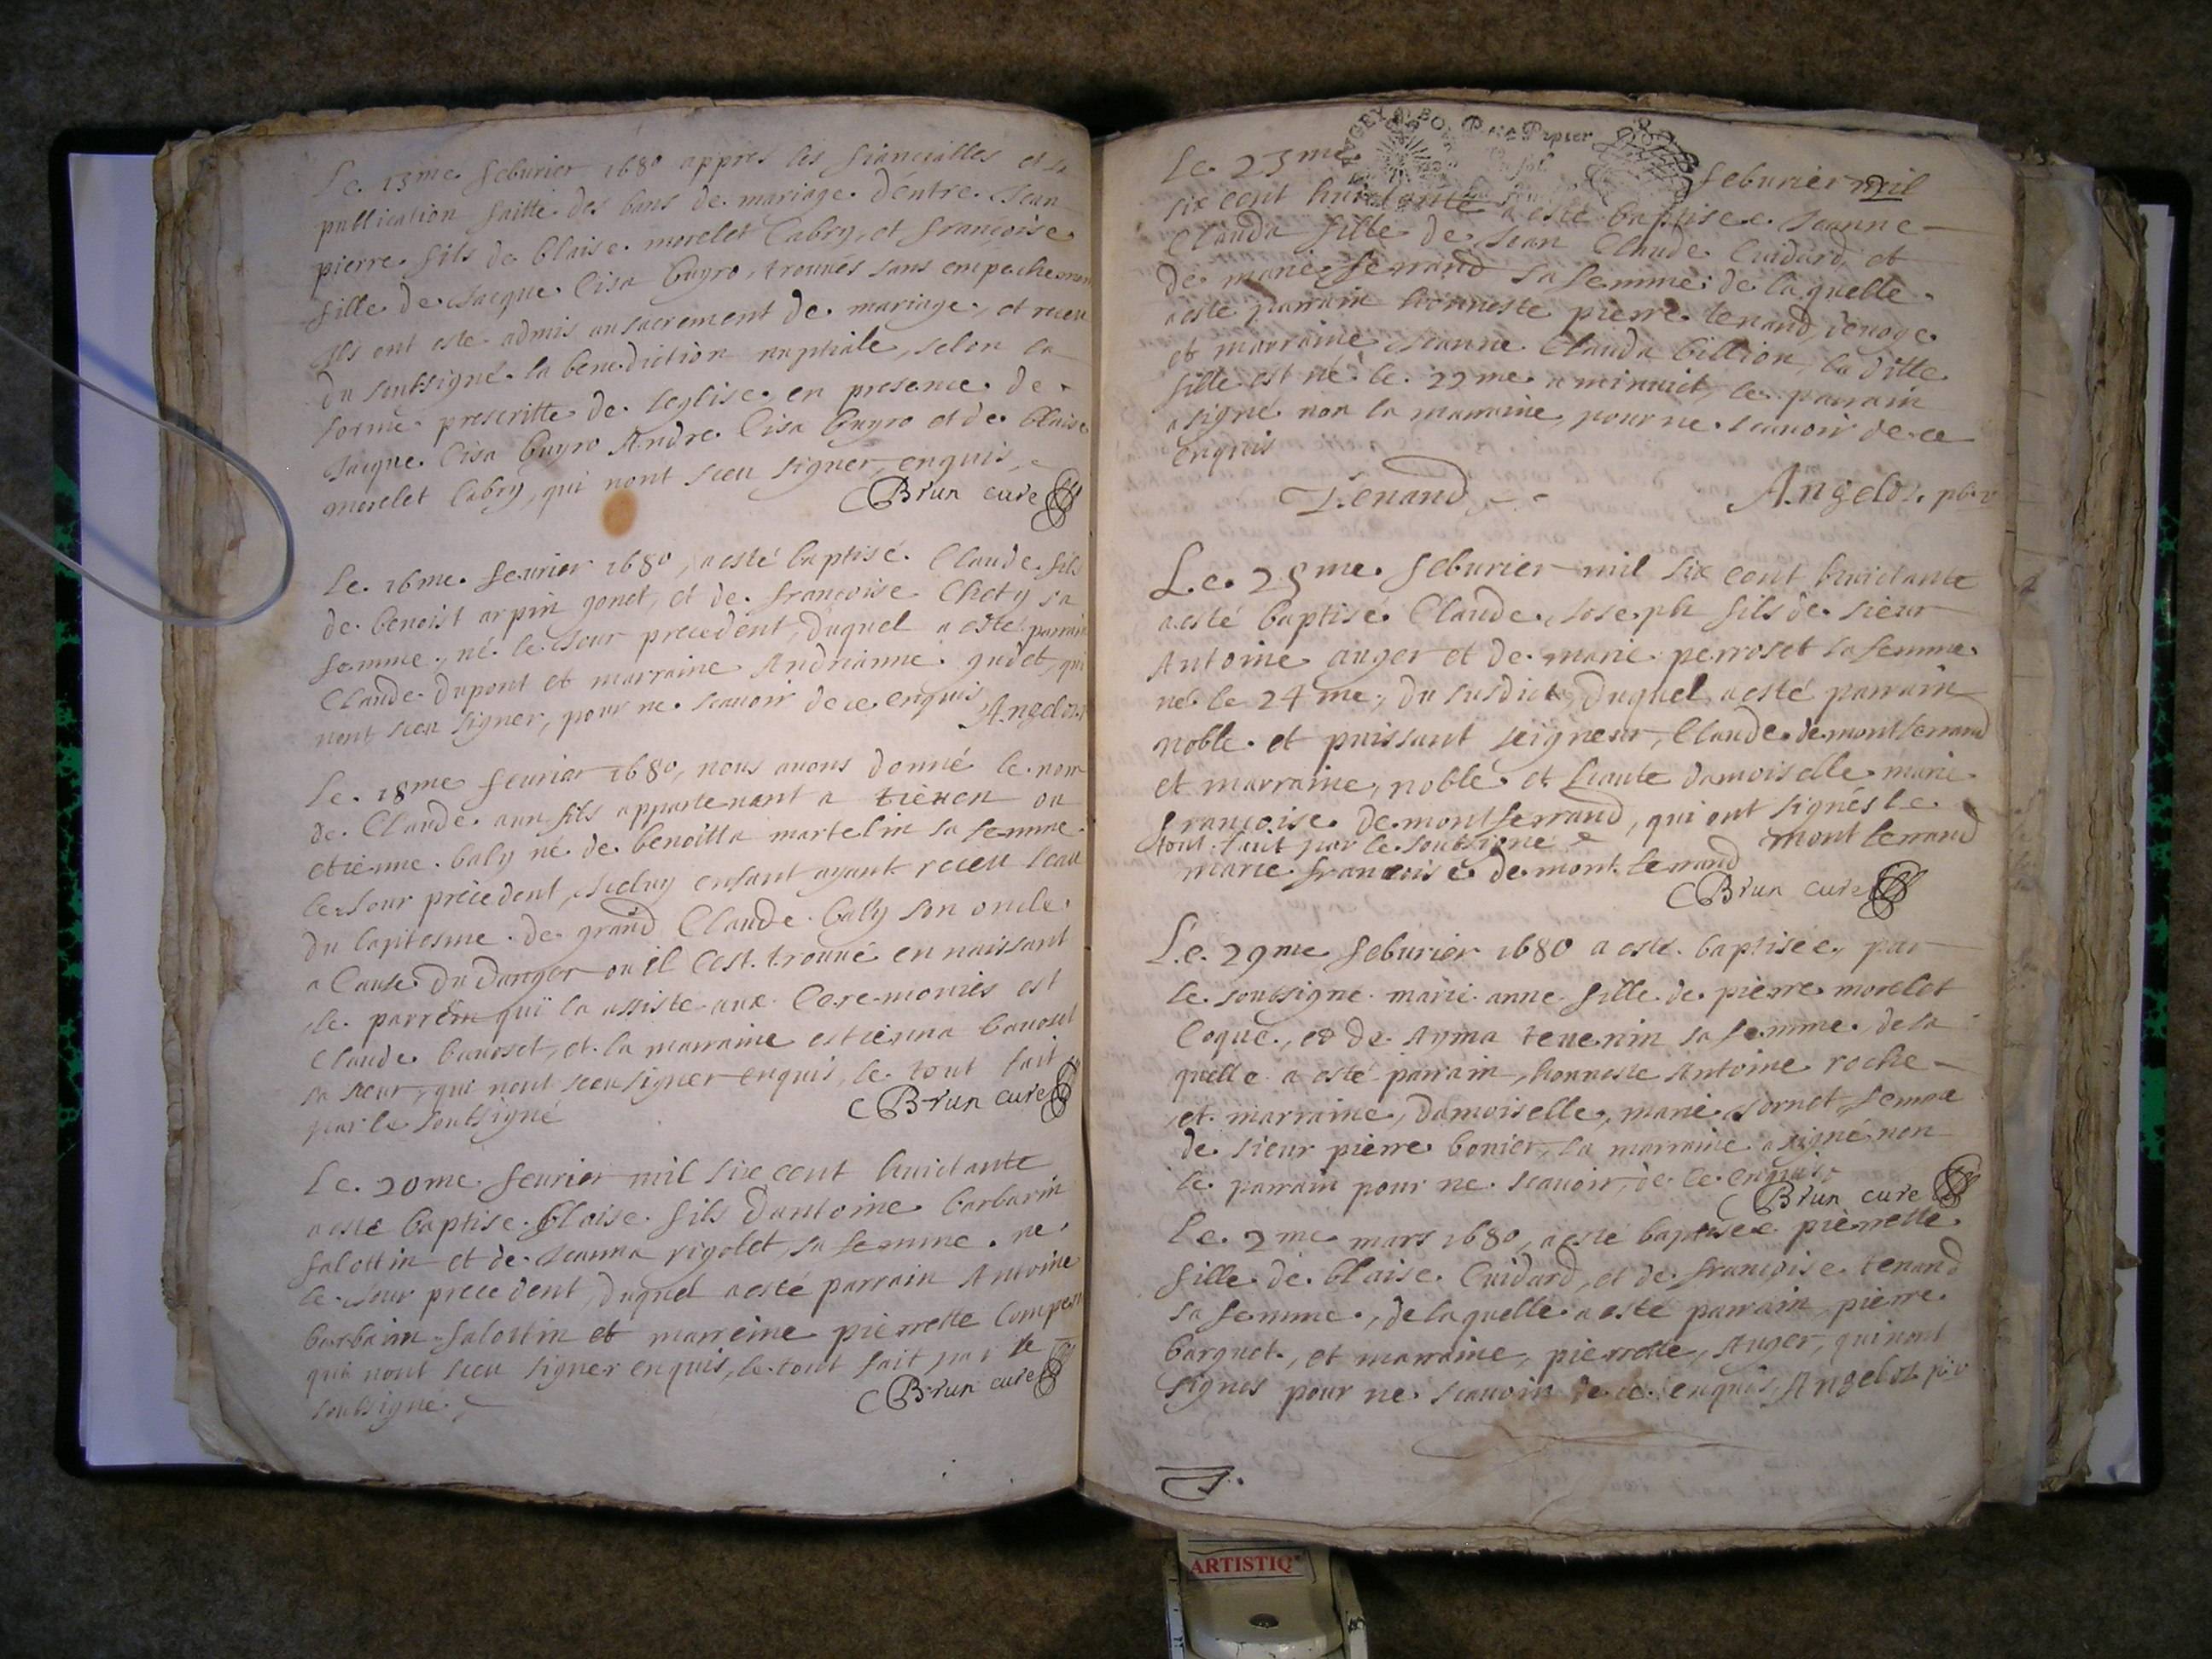 Le 13me feburier 1680 appres les fiancialles et la
publication faitte des bans de mariage d'entre Jean
pierre fils de blaise morelet labry, et françoise
fille de Jacque lisa buyro, trouués sans empechement
Ils ont esté admis au sacrement de mariage, et receu
du soubsigné la benediction nuptiale, selon la
forme prescritte de leglise, en presence de
Jacque lisa buyro Andre lisa buyro et de blaise
morelet labry, qui nont sceu signer enquis
Brun curé
Le 16me feurier 1680, a esté baptisé Claude fils
de benoist arpin gonet, et de françoise Chaty sa
femme, né le Jour precedent, duquel a esté parrain
Claude dupont et marraine Andrianne gudet, qui
nont sceu signer, pour ne scauoir de ce enquis Angeloz
Le 18me feurier 1680, nous auons donné le nom
de Claude aun fils appartenant a tieuen ou
etienne baly né de benoitta martelin sa femme
le Jour precedent, Iceluy enfant ayant receu leau
du baptesme de grand Claude bally son oncle
a Cause du danger ou il C'est trouué en naissant
le parrein qui la assisté aux Ceremonies est
Claude bauoset, et la marraine estienna bauoset
sa sœur, qui nont sceu signer enquis, le tout fait
par le soubsigné
Brun curé
Le 20me feurier mil six cent huictante
a esté baptisé blaise fils dantoine barbarin
falottin et de Jeanna rigolet sa femme né
le Jour precedent, duquel a esté parrain Antoine
barbarin falottin et marreine pierrette
qui nont sceu signer enquis, le tout fait par le
soubsigné
Brun curé
Papier
Le 23me feburier mil
six cent huictante a esté baptisee Jeanne
Clauda fille de Jean Claude Cuidard, et
de marie ferrand sa femme: de laquelle
a esté parrain honneste pierre tenand, denoge
et marraine Jeanne Clauda billion, la ditte
fille est né le 22me a minuict, le parrain
a signé non la marraine, pour ne scauoir de ce
enquis
Tenand
Angeloz pbr
Le 25me feburier mil six cent huictante
a esté baptisé Claude Joseph fils de sieur
Antoine auger et de marie perroset sa femme
né le 24me, du susdict, duquel a esté parrain
noble et puissant seigneur, Claude de montferrand
et marraine, noble et haute damoiselle marie
françoise de montferrand, qui ont signés le
tout fait par le soubsigné montferrand
marie françoise de montferrand
Brun curé
Le 29me feburier 1680 a esté baptisee, par
le soubsigné marie anne fille de pierre morelet
Coque, et de Ayma teuenin sa femme, de la
quelle a esté parrain, honneste Antoine roche
et marraine, damoiselle, marie Jornet femme
de sieur pierre bonier, la marraine a signé non
le parrain pour ne scauoir, de ce enquis
Brun curé
Le 2me mars 1680, a esté baptisee pierrette
fille de blaise Cuidard, et de françoise tenand
sa femme, de laquelle a esté parrain pierre
barquet, et marraine, pierrette, Auger, qui nont
signes pour ne scauoir de ce enquis Angeloz
ARTISTIQ